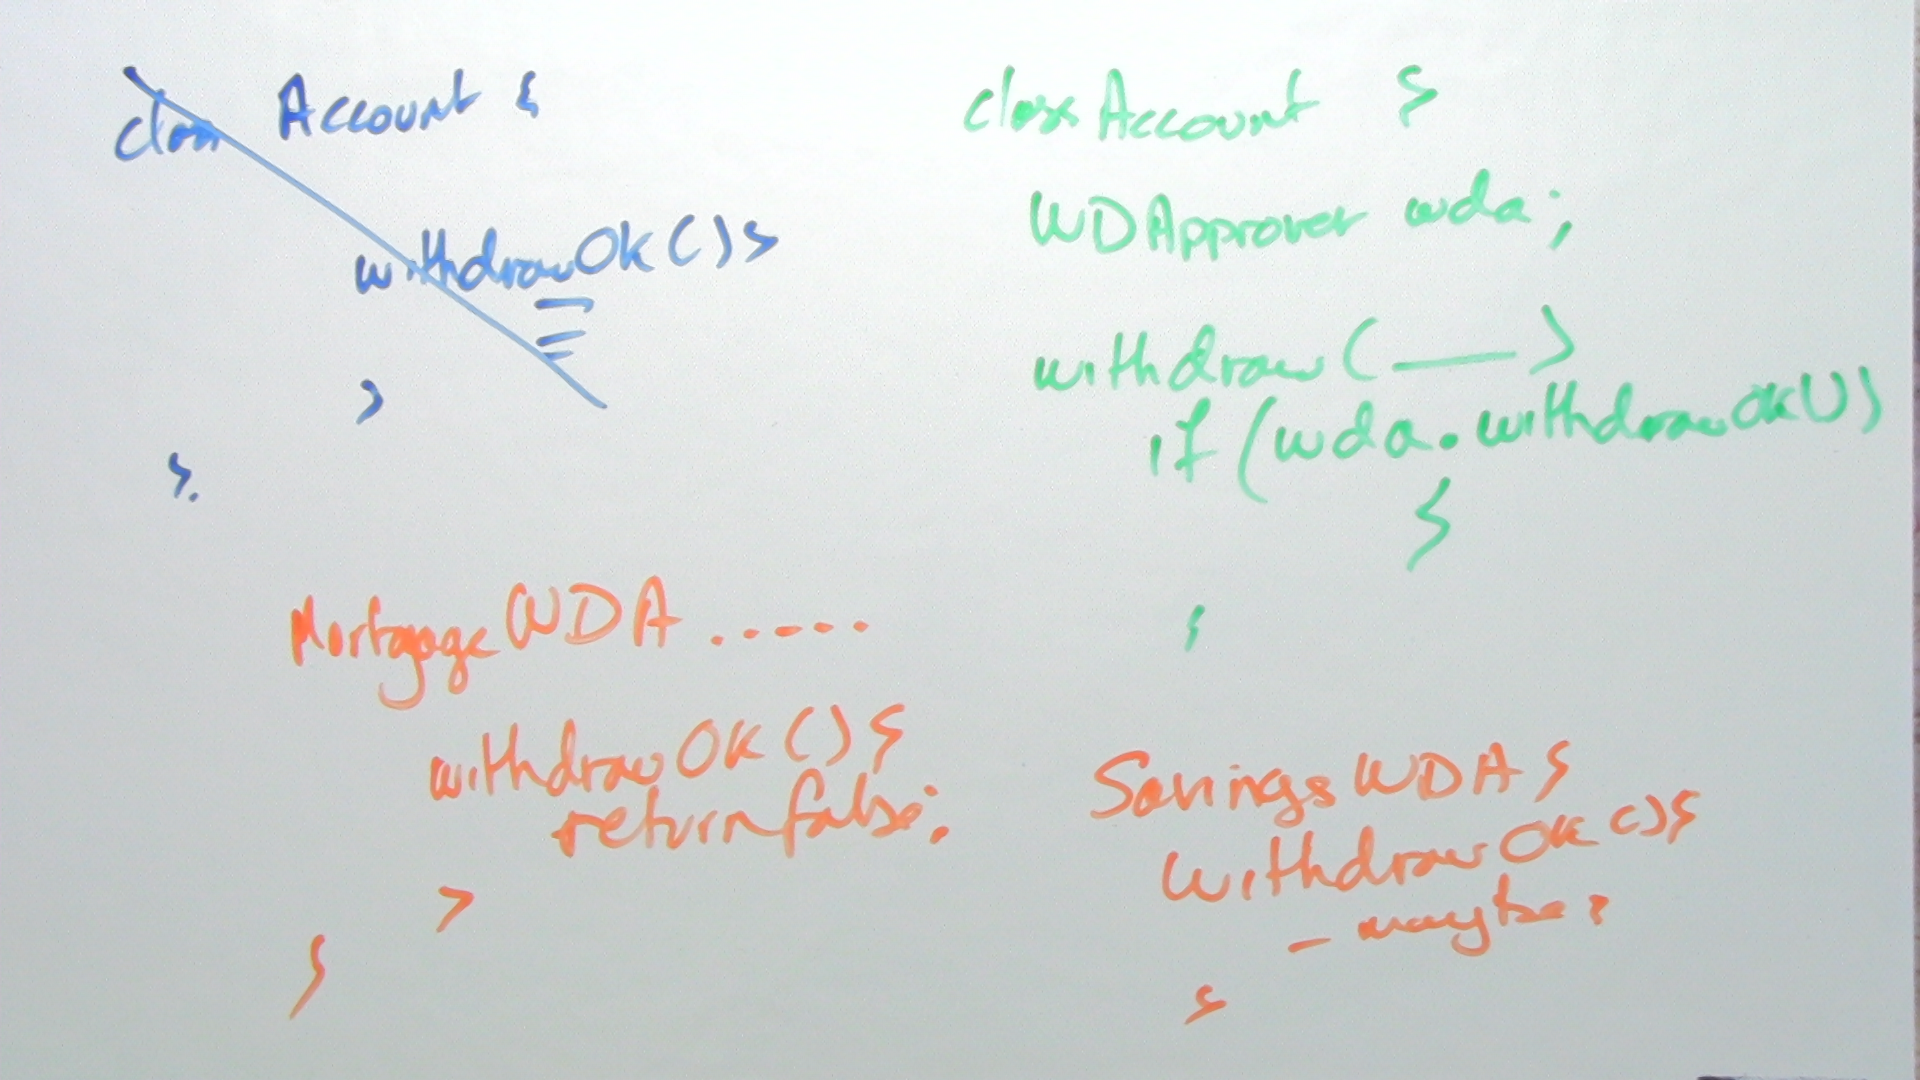 class Account {
withdrawOk() {
}
}
class Account {
WDApprover wda;
withdraw( ___ )
if (wda.withdrawOK())
{
}
MortgageWDA .....
withdrawOK() {
return false;
}
}
SavingsWDA {
withdrawOK() {
- maybe;
}